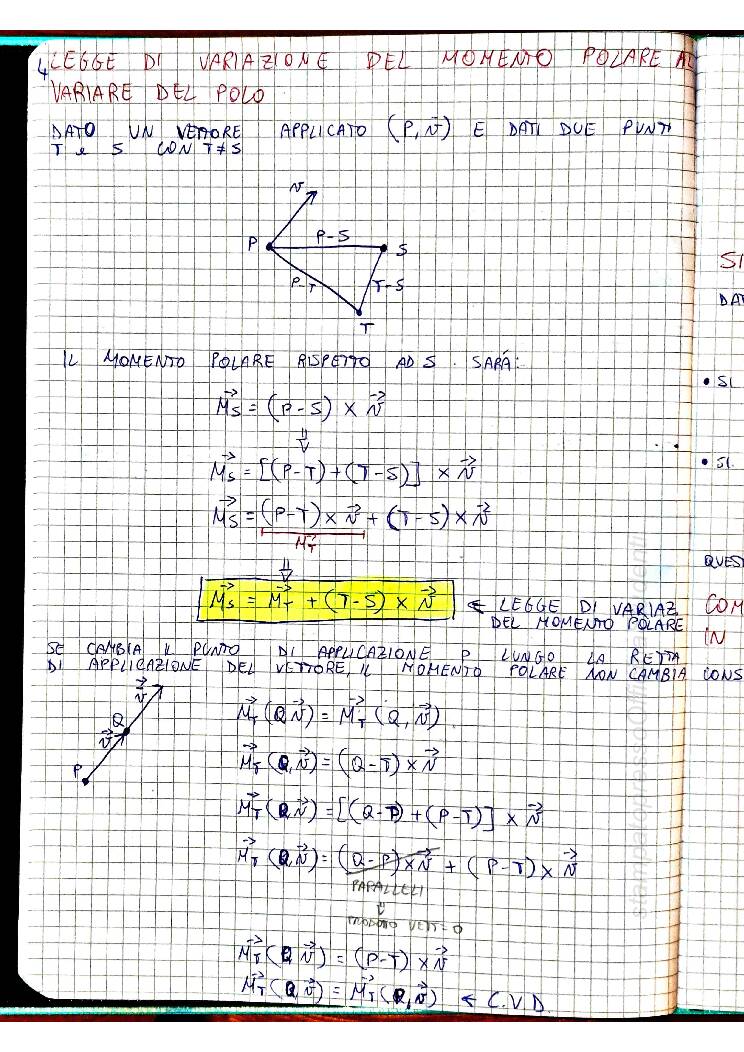 4
LEGGE DI VARIAZIONE DEL MOMENTO POLARE AL
VARIARE DEL POLO
DATO UN VETTORE APPLICATO (P, v⃗) E DATI DUE PUNTI
T e S CON T≠S
v
P
P-S
S
P-T
T-S
T
IL MOMENTO POLARE RISPETTO AD S. SARÁ:
M⃗s = (P-S) × v⃗
⇓
M⃗s = [(P-T)+(T-S)] × v⃗
M⃗s = (P-T) × v⃗ + (T-S) × v⃗
M⃗T
⇓
M⃗s = M⃗T + (T-S) × v⃗ ⇐ LEGGE DI VARIAZ
DEL MOMENTO POLARE
SE CAMBIA IL PUNTO DI APPLICAZIONE P LUNGO LA RETTA
DI APPLICAZIONE DEL VETTORE, IL MOMENTO POLARE NON CAMBIA
v⃗
Q
v⃗
P
M⃗T (Q v⃗) = M⃗T (Q, v⃗)
M⃗T (Q, v⃗) = (Q-T) × v⃗
M⃗T (Q v⃗) = [(Q-P) + (P-T)] × v⃗
M⃗T (Q v⃗) = (Q-P) × v⃗ + (P-T) × v⃗
PARALLELI
⇓
PRODOTTO VETT=0
M⃗T (Q v⃗) = (P-T) × v⃗
M⃗T (Q, v⃗) = M⃗T (Q, v⃗) ⇐ C.V.D.
SI
DAT
• SI
• SI
QUEST
COM
IN
CONS